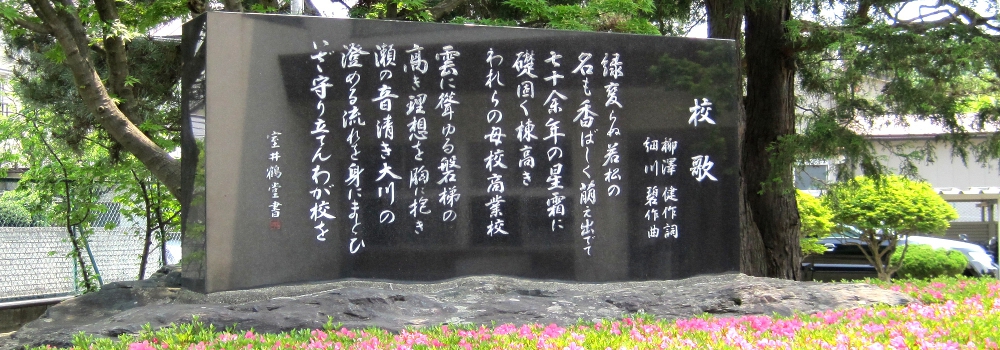 校歌
柳澤 健作詞
細川 碧作曲
緑変らぬ若松の
名も香ばしく萌え出でて
七十余年の星霜に
礎固く棟高き
われらの母校商業校
雲に聳ゆる磐梯の
高き理想を胸に抱き
瀬の音清き大川の
澄める流れを身にまとひ
いざ守り立てんわが校を
室井鶴堂書